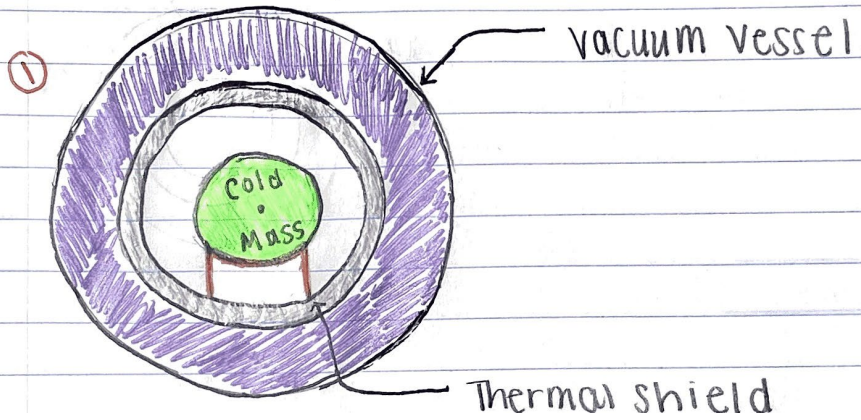 ①
vacuum vessel
Cold
Mass
Thermal shield